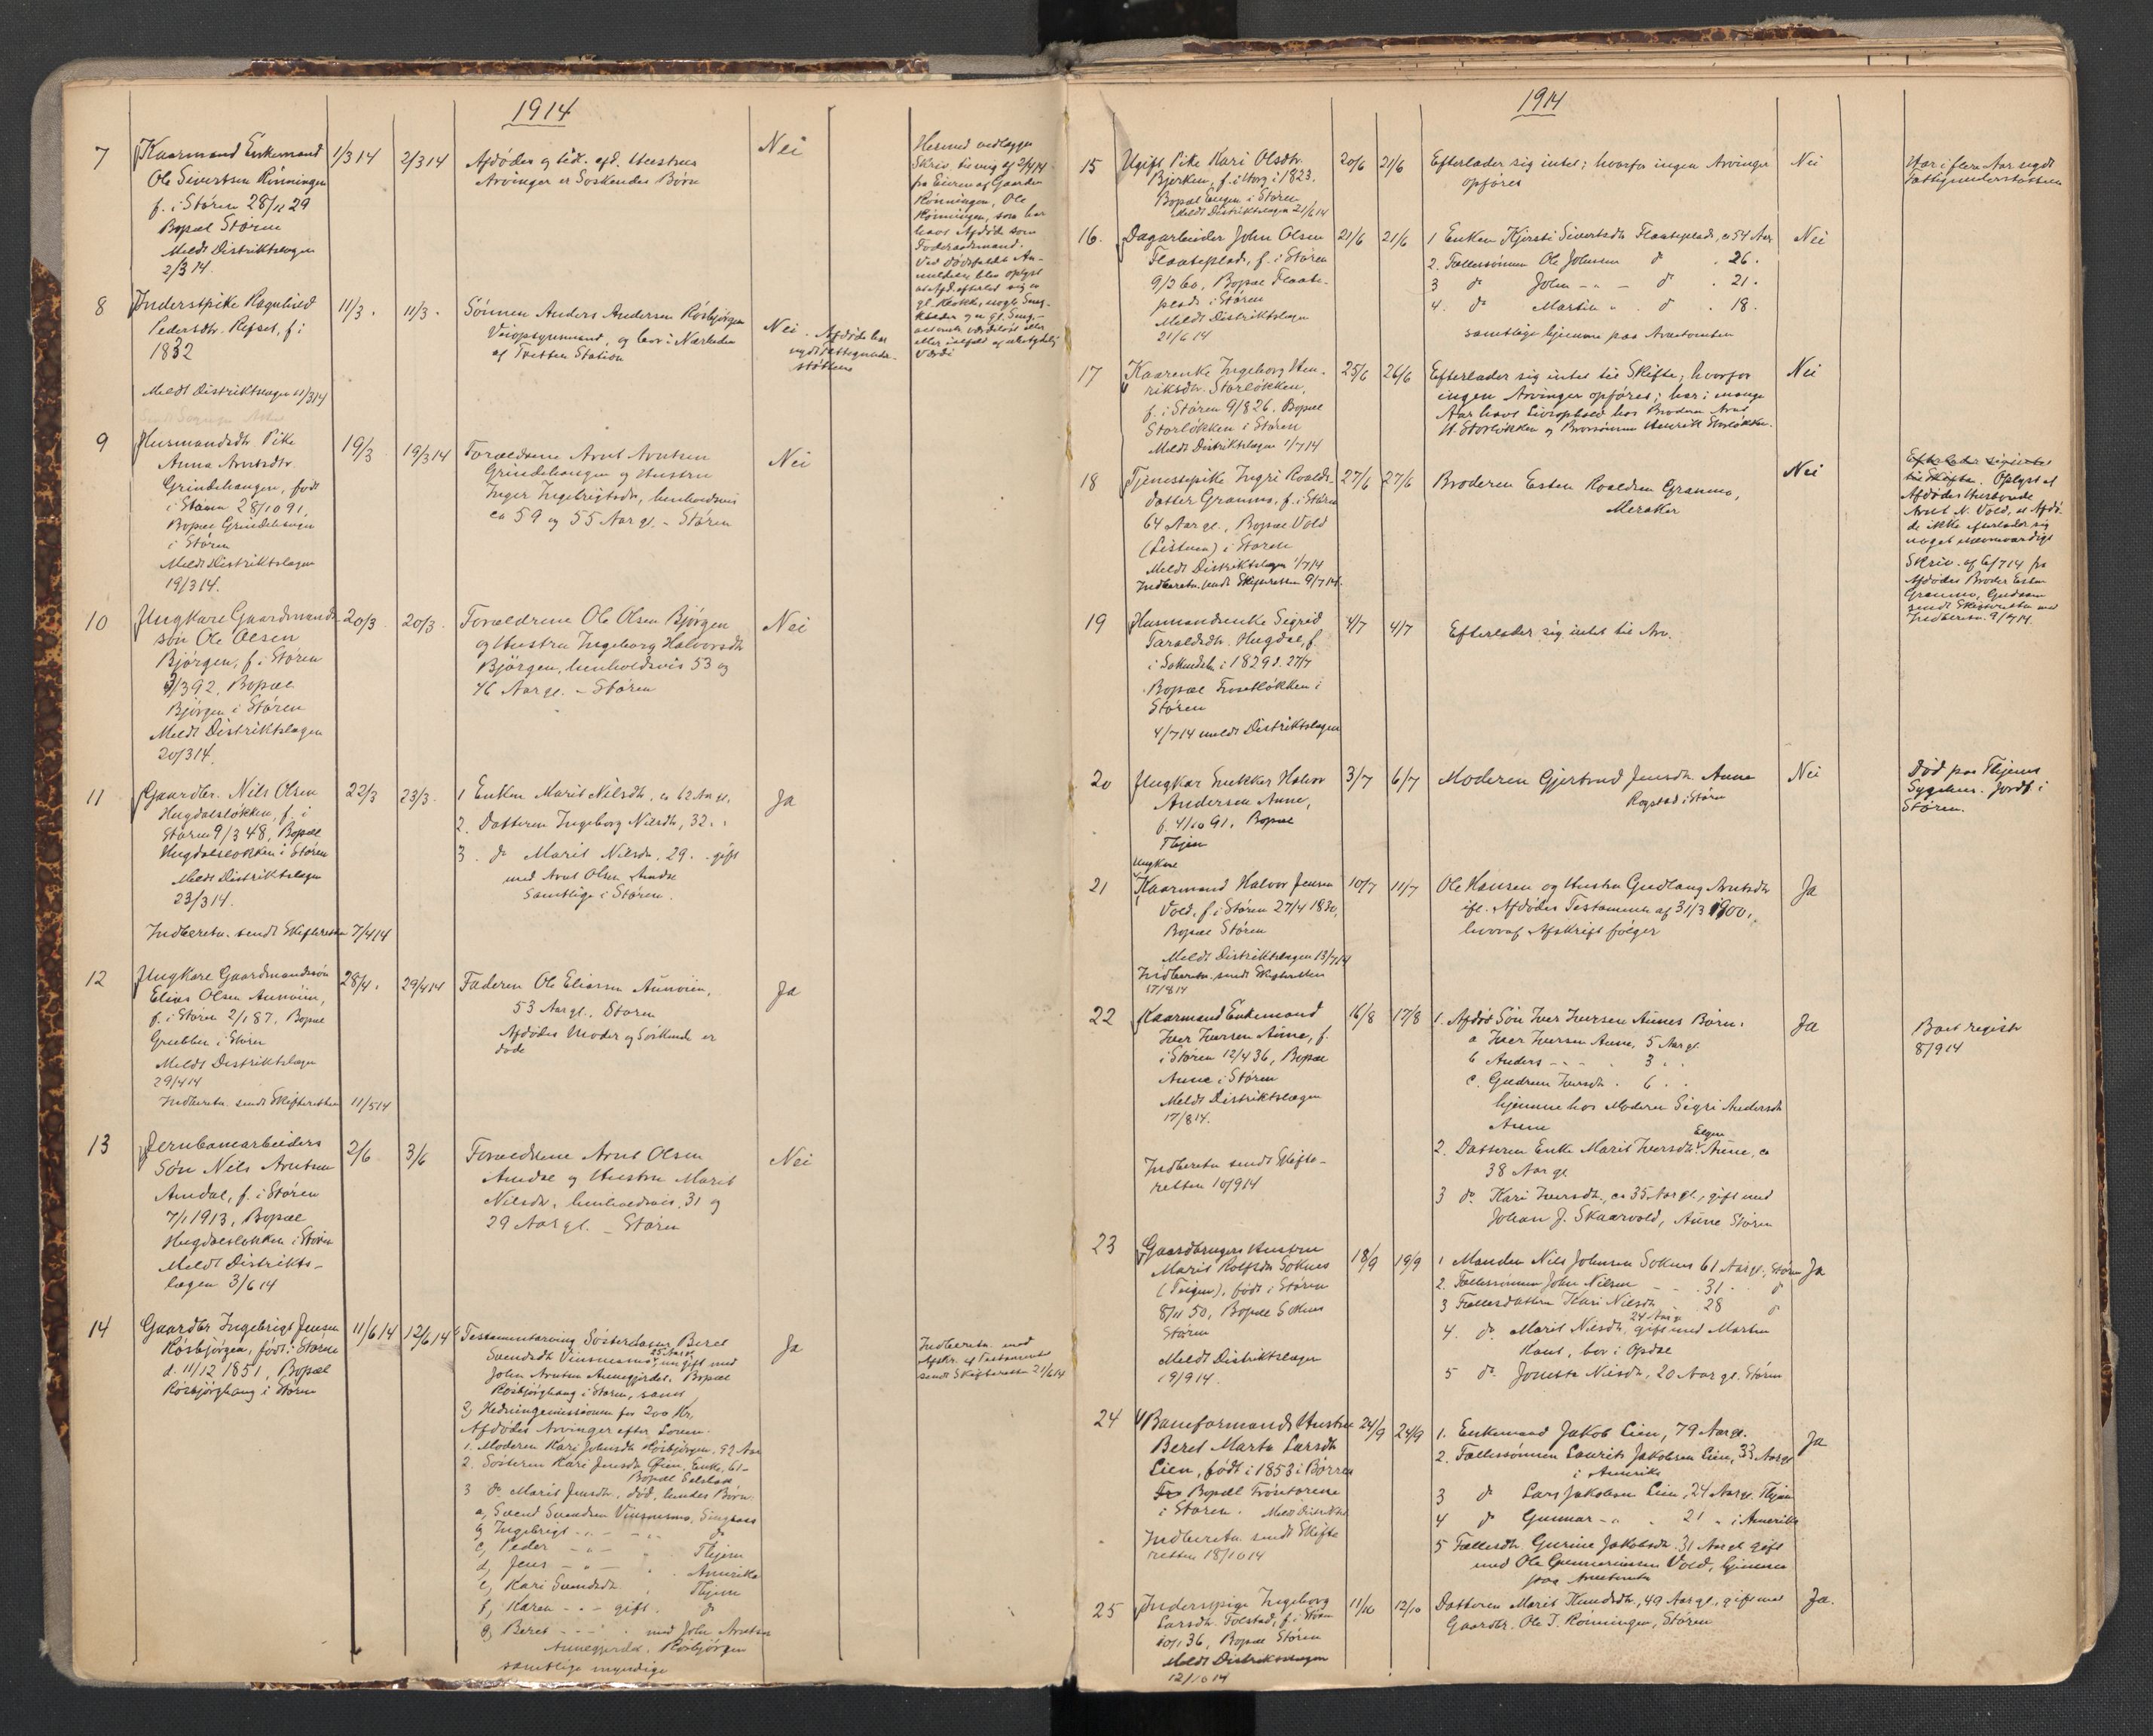 1914
7
Kaarmand Enkemand
Ole Sivertsen Rönningen
f. i Stören 28/12 29
Bopæl Stören
Meldt Distriktslægen
2/3 14.
1/3 14
2/3 14
Afdödes og tidl. afd. Hustrus
Arvinger er Söskendes Börn
Nei
Hermed vedlægges
fra Eieren af Gaarden
Rönningen, Ole
Rönningen, som har
havt Afdöde som
Foderaadsmand.
8
Inderstpike Ragnhild
Pedersdtr. Refset, f. i
1832
Meldt Distriktslægen 11/3 14
11/3.
11/3.
Sönnen Anders Andersen Rösbjörgen
Veiopsynsmand, og bor i Nærheden
af Tretten Station
Nei. Afdöde har
nydt Fattigunder-
stöttelse
9
Husmandsdtr Pike
Anna Arntsdtr.
Grindehaugen, född
i Stören 28/10 91,
Bopæl Grindehaugen
i Stören
Meldt Distriktslægen
19/3 14.
19/3
19/3 14
Forældrene Arnt Arntsen
Grindehaugen og Hustru
Inger Ingebrigtsdtr, henholdsvis
ca 59 og 55 Aar gl. - Stören
Nei
10
Ungkarl Gaardmands
sön Ole Olsen
Björgen, f. i Stören
3/3 92, Bopæl
Björgen i Stören
Meldt Distriktslægen
20/3 14.
20/3
20/3.
Forældrene Ole Olsen Björgen
og Hustru Ingeborg Halvorsdtr
Björgen, henholdsvis 53 og
46 Aar gl. - Stören
Nei
11
Gaardbr. Nils Olsen
Hugdalslökken, f. i
Stören 9/3 48, Bopæl
Hugdalslökken i Stören
Meldt Distriktslægen
23/3 14.
Indberetn. sendt Skifteretten 7/4 14
22/3
23/3.
1 Enken Marit Nilsdtr, ca 62 Aar gl.
2. Datteren Ingeborg Nilsdtr, 32. "
3. do Marit Nilsdtr. 29. . gift
med Arnt Olsen Amdal
Samtlige i Stören.
Ja
12
Ungkarl Gaardmandssön
Elias Olsen Aunöien,
f. i Stören 2/1 87, Bopæl
i Stören
Meldt Distriktslægen
29/4 14
Indberetn. sendt Skifteretten 11/5 14
28/4.
29/4 14
Faderen Ole Eliassen Aunöien,
53 Aar gl., Stören
Afdödes Moder og Söskende er
döde
Ja
13
Jernbanearbeiders
Sön Nils Arntsen
Amdal, f. i Stören
7/1 1913, Bopæl
Hugdalslökken i Stören
Meldt Distrikts-
lægen 3/6 14
2/6
3/6
Forældrene Arnt Olsen
Amdal og Hustru Marit
Nilsdtr, henholdsvis 31 og
29 Aar gl. - Stören
Nei
14
Gaardbr Ingebrigt Jensen
Rösbjörgen, född i Stören
d. 11/12 1851, Bopæl
Rösbjörghaug i Stören
11/6 14
12/6 14
Testamentarving Sösterdatter Beret
Svendsdtr Vinsnesmo, 25 Aar gl. gift med
John Arntsen Aunegjerdet, Bopæl
Rösbjörghaug i Stören, samt
2, Hedningemissionen for 200 Kr,
Afdödes Arvinger efter Loven.
1. Moderen Kari Johnsdtr Rösbjörgen, 92 Aar
2. Sösteren Kari Jensdtr Öien, Enke, 61-
3 do Marit Jensdtr, död, hendes Börn:
a, Svend Svendsen Vinsnesmo, Singsaas
b, Ingebrigt - " - - " - do
c, Peder - " - " Thjem
d, Jens - " - " Amerika
e, Kari Svendsdtr. " Thjem
f, Karen - " - gift. do
g, Beret - " - " med John Arntsen
Aunegjerdet, Rösbjörgen
samtlige myndige
Ja
Indberetn. med
Afskr. af Testamentet
sendt Skifteretten 21/6 14
1914
15
Ugift Pike Kari Olsdtr.
Bjerken, f. i 1823.
Bopæl Engen i Stören
Meldt Distriktslægen 21/6 14
20/6
21/6
Efterlader sig intet; hvorfor ingen Arvinger
opföres
Nei
Har i flere Aar nydt
Fattigunderstöttelse
16.
Dagarbeider John Olsen
Flaateplads, f. i Stören
9/3 60, Bopæl Flaate-
plads i Stören
Meldt Distriktslægen
21/6 14
21/6
21/6
1 Enken Kjersti Sivertsdtr Flaateplads, ca 54 Aar
2. Fællessönnen Ole Johnsen do . 26.
3 do John - " - do . 21.
4. do Martin " . do . 18.
samtlige hjemme paa Arvetomten
Nei
17
Kaarenke Ingeborg Hen-
riksdtr. Storlökken,
f. i Stören 9/8 26, Bopæl
Storlökken i Stören
Meldt Distriktslægen 1/7 14
25/6
26/6
Efterlader sig intet til Skifte; hvorfor
ingen Arvinger opföres; har i mange
Aar havt Livsophold hos Broderen Arnt
H. Storlökken og Brorsönnen Henrik Storlökken.
Nei
18
Tjenestepike Ingri Roalds-
datter Granmo, f. i Stören
64 Aar gl., Bopæl Vold
i Stören
Meldt Distriktslægen 1/7 14
Indberetn. sendt Skifteretten 9/7 14.
27/6
27/6
Broderen Esten Roaldsen Granmo,
Meraker
Nei
Efterlader sig intet
til Skifte. Oplyst af
Afdödes Husbonde
Arnt N. Vold, at Afdö-
de ikke efterlader sig
noget nævneværdigt
Skriv. af 6/7 14 fra
Afdödes Broder Esten
Granmo, Gudaaen
sendt Skifteretten med
Indberetn. 9/7 14.
19
Husmandsenke Sigrid
Taraldsdtr. Hugdal, f.
i Soknedalen i 1829 d. 27/7
Bopæl Frosetlökken i
Stören
4/7 14 meldt Distriktslægen
4/7
4/7
Efterlader sig intet til Arv.
20
Ungkar Snekker Halvor
Andersen Aune,
f. 4/10 91, Bopæl
Thjem
3/7
6/7
Moderen Gjertrud Jensdtr. Aune
Rogstad i Stören
Nei
Död paa Thjems
Sygehus. Jordf. i
Stören.
21
Ungkarl
Kaarmand Halvor Jensen
Vold, f. i Stören 27/4 1830,
Bopæl Stören
Meldt Distriktslægen 13/7 14
Indberetn. sendt Skifteretten
17/8 14
10/7
11/7
Ole Hansen og Hustru Gudlaug Arntsdtr
ifl. Afdödes Testamente af 31/3 1900,
hvoraf Afskrift fölger
Ja
22
Kaarmand Enkemand
Iver Iversen Aune, f.
i Stören 12/4 36, Bopæl
Aune i Stören
Meldt Distriktslægen
17/8 14.
Indberetn sendt Skifte-
retten 10/9 14
16/8
17/8
1. Afdöd Sön Iver Iversen Aunes Börn:
a Iver Iversen Aune, 5 Aar gl.
b Anders - " - " 3 " "
c. Gudrun Iversdtr . 6 . .
hjemme hos Moderen Sigri Andersdtr
Aune
2. Datteren Enke Marit Iversdtr Aune, ca
38 Aar gl.
3 do. Kari Iversdtr, ca 35 Aar gl., gift med
Johan J. Skaarvold, Aune Stören
Ja
Boet registr
8/9 14
23
Gaardbrugers Hustru
Marit Rolfsdtr Soknes
född i Stören
8/11 50, Bopæl Soknes
Stören
Meldt Distriktslægen
19/9 14.
18/9
19/9
1 Manden Nils Johnsen Soknes 61 Aar gl., Stören
2. Fællessönnen John Nilsen - - 31 . do
3 Fællesdatteren Kari Nilsdtr . 28 do
4. do. Marit Nilsdtr, 24 Aar gl. gift med Morten
bor i Opdal
5 do. Nilsdtr, 20 Aar gl. Stören
Ja
24
Baneformands Hustru
Beret Marta Larsdtr
Lien, född i 1853 i Börsen
Bopæl
i Stören. Meldt Distriktsl
Indberetn. sendt Skifte
retten 18/10 14
24/9
24/9
1. Enkemand Jakob Lien, 79 Aar gl.
2. Fællessönnen Laurits Jakobsen Lien, 33 Aar gl
i Amerika
3 do Lars Jakobsen Lien, 24 Aar gl. Thjem
4 do Gunnar - " . " 21 " i Amerika
5 Fællesdtr. Gurine Jakobsdtr. 31 Aar gl. gift
med Ole Gunneriussen Vold, hjemme
paa Arvetomten
Ja
25
Inderstpige Ingeborg
Larsdtr. Folstad, f. i Stören
36, Bopæl Stören
Meldt Distriktslægen
12/10 14
11/10
12/10
Datteren Marit Knudsdtr., 49 Aar gl., gift med
Gaardbr. Ole T. Rönningen, Stören
Ja.